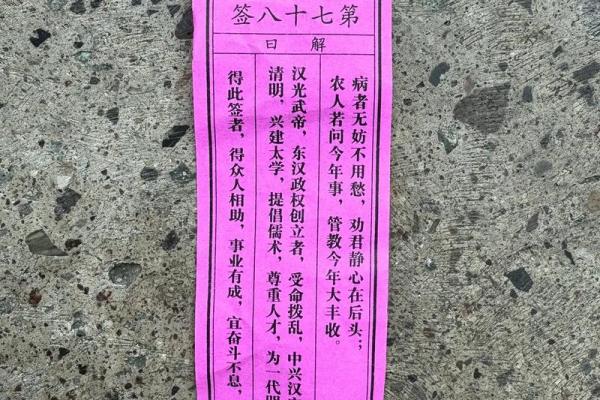 第七十八签
解曰
病者无妨不用愁，劝君静心在后头；
农人若问今年事，管教今年大丰收。
汉光武帝，东汉政权创立者，受命拨乱，中兴汉
清明，兴建太学，提倡儒术，尊重人才，为一代
得此签者，得众人相助，事业有成，宜奋斗不息，